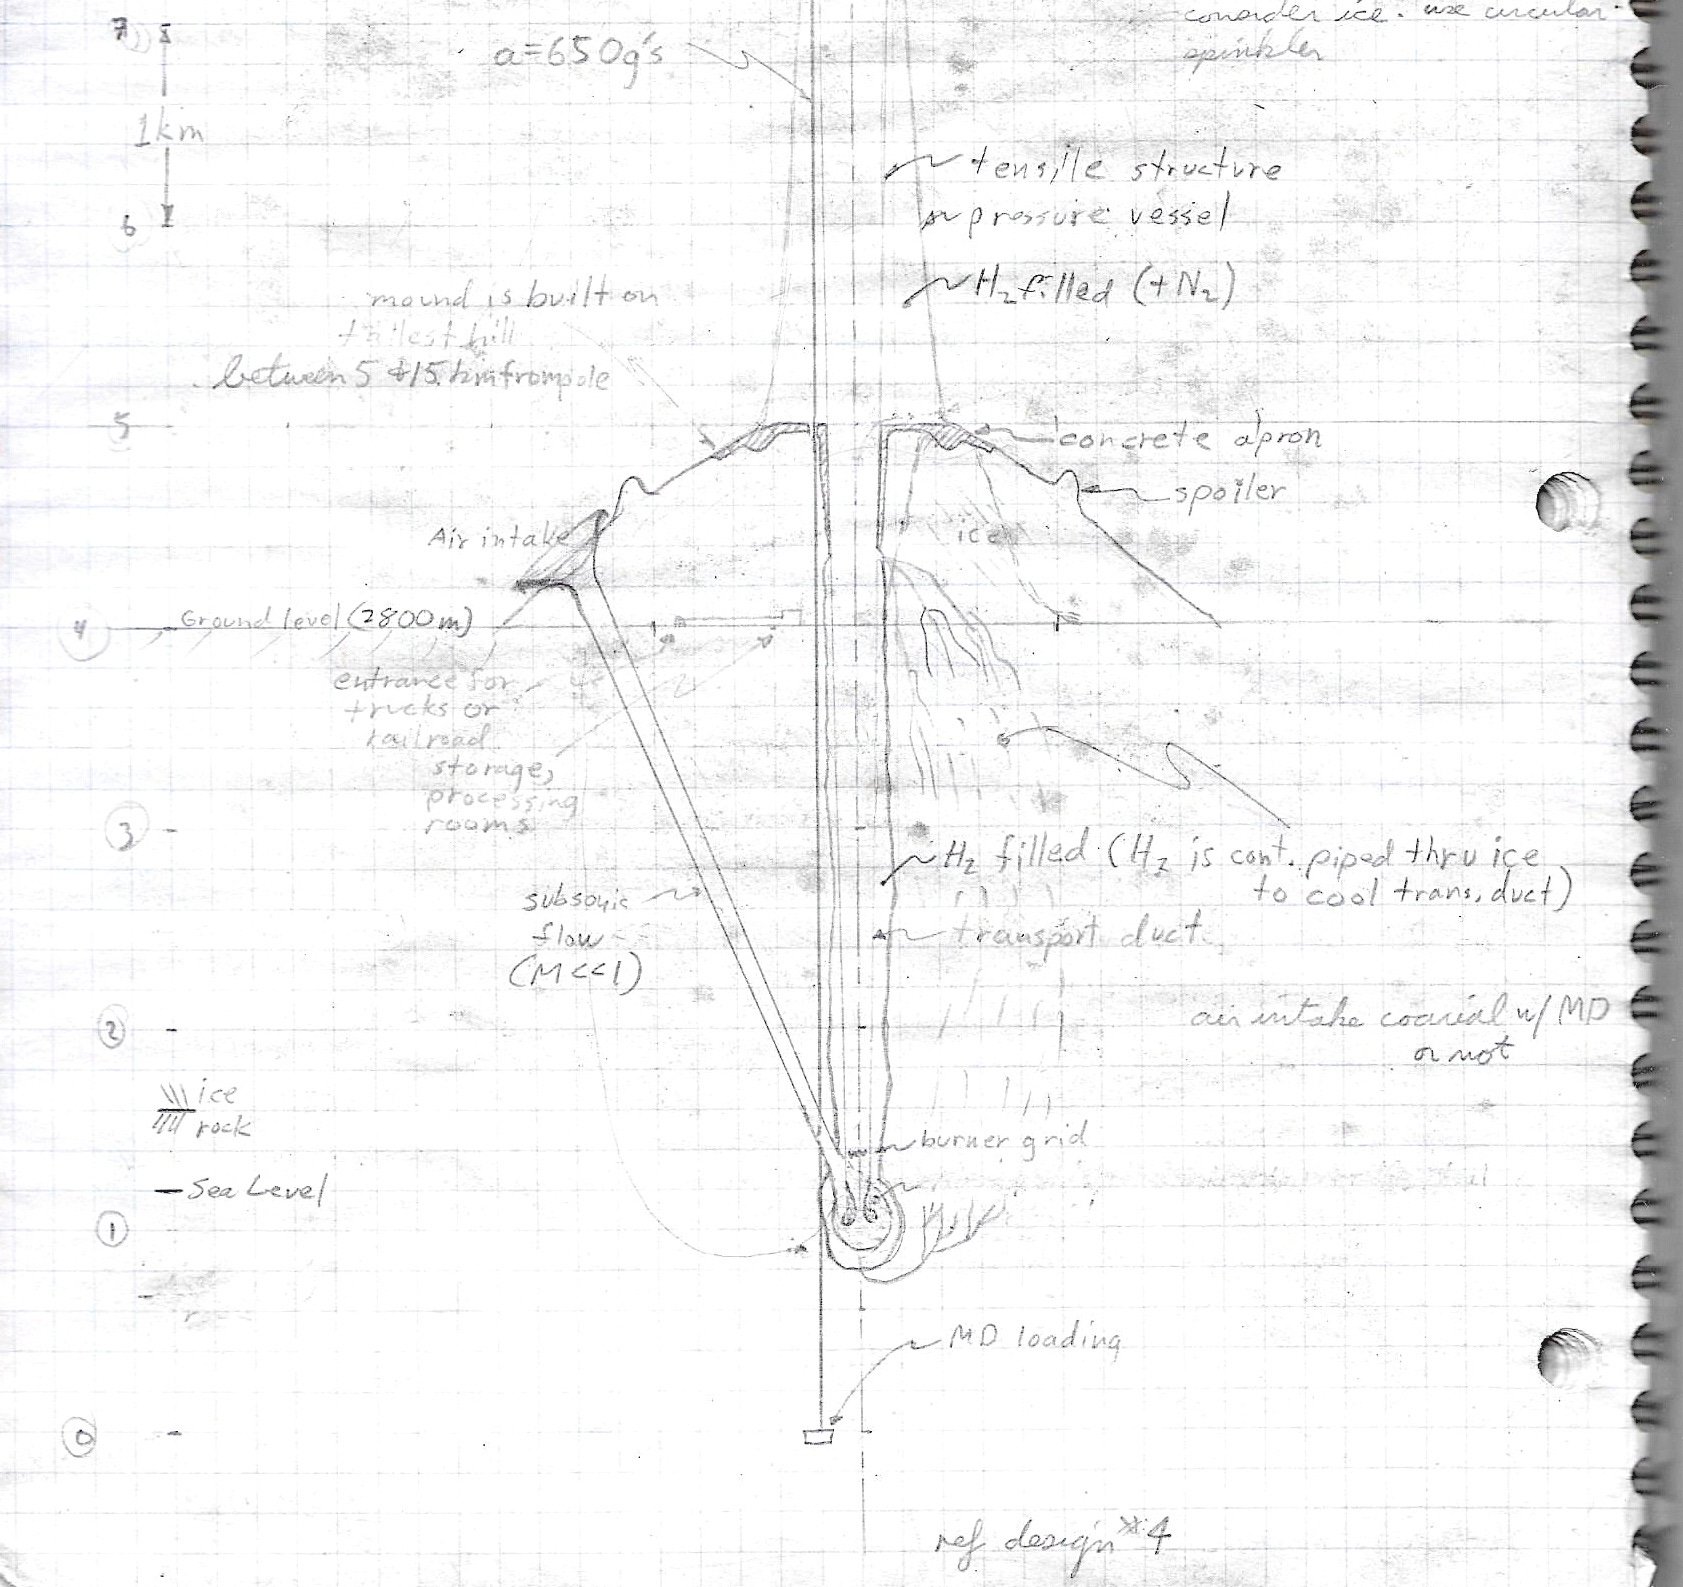 consider ice. use circular
spinkler
7
a=650g's
1km
tensile structure
pressure vessel
6
H₂ filled (+N₂)
mound is built on
tallest hill
between 5 & 15 km from pole
5
concrete apron
spoiler
Air intake
ice
4
Ground level (2800m)
entrance for
trucks or
railroad
storage,
processing
rooms
3
H₂ filled (H₂ is cont. piped thru ice
to cool trans. duct)
subsonic
flow
(M<<1)
transport duct
air intake coaxial w/ MD
or not
2
ice
rock
burner grid
Sea Level
1
MD loading
0
ref design #4